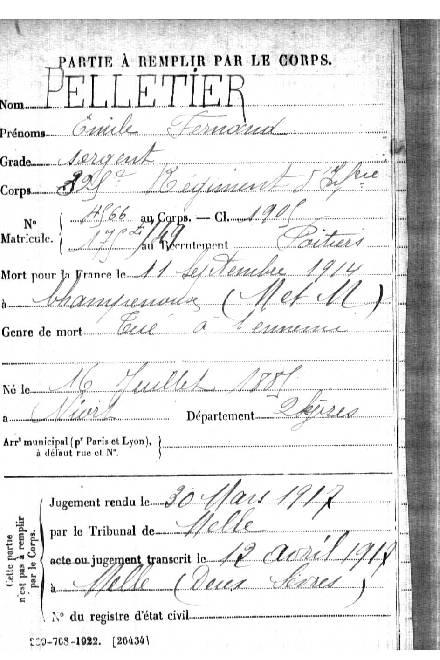 PARTIE À REMPLIR PAR LE CORPS.
Nom PELLETIER
Prénoms Emile Fernand
Grade sergent
Corps 325e Régiment d'Infrie
N° Matricule. 4566 au Corps. — Cl. 1905
au Recrutement Poitiers
Mort pour la France le 11 Septembre 1914
à Champenoux (M et M)
Genre de mort Tué à l'ennemi
Né le 16 Juillet 1885
à Niort Département 2 Sèvres
Arrt municipal (pr Paris et Lyon),
à défaut rue et N°.
Cette partie n'est pas à remplir par le Corps.
Jugement rendu le 30 Mars 1917
par le Tribunal de Melle
acte ou jugement transcrit le 12 avril 1917
à Melle (Deux Sèvres)
N° du registre d'état civil
-708-1922. [26434]